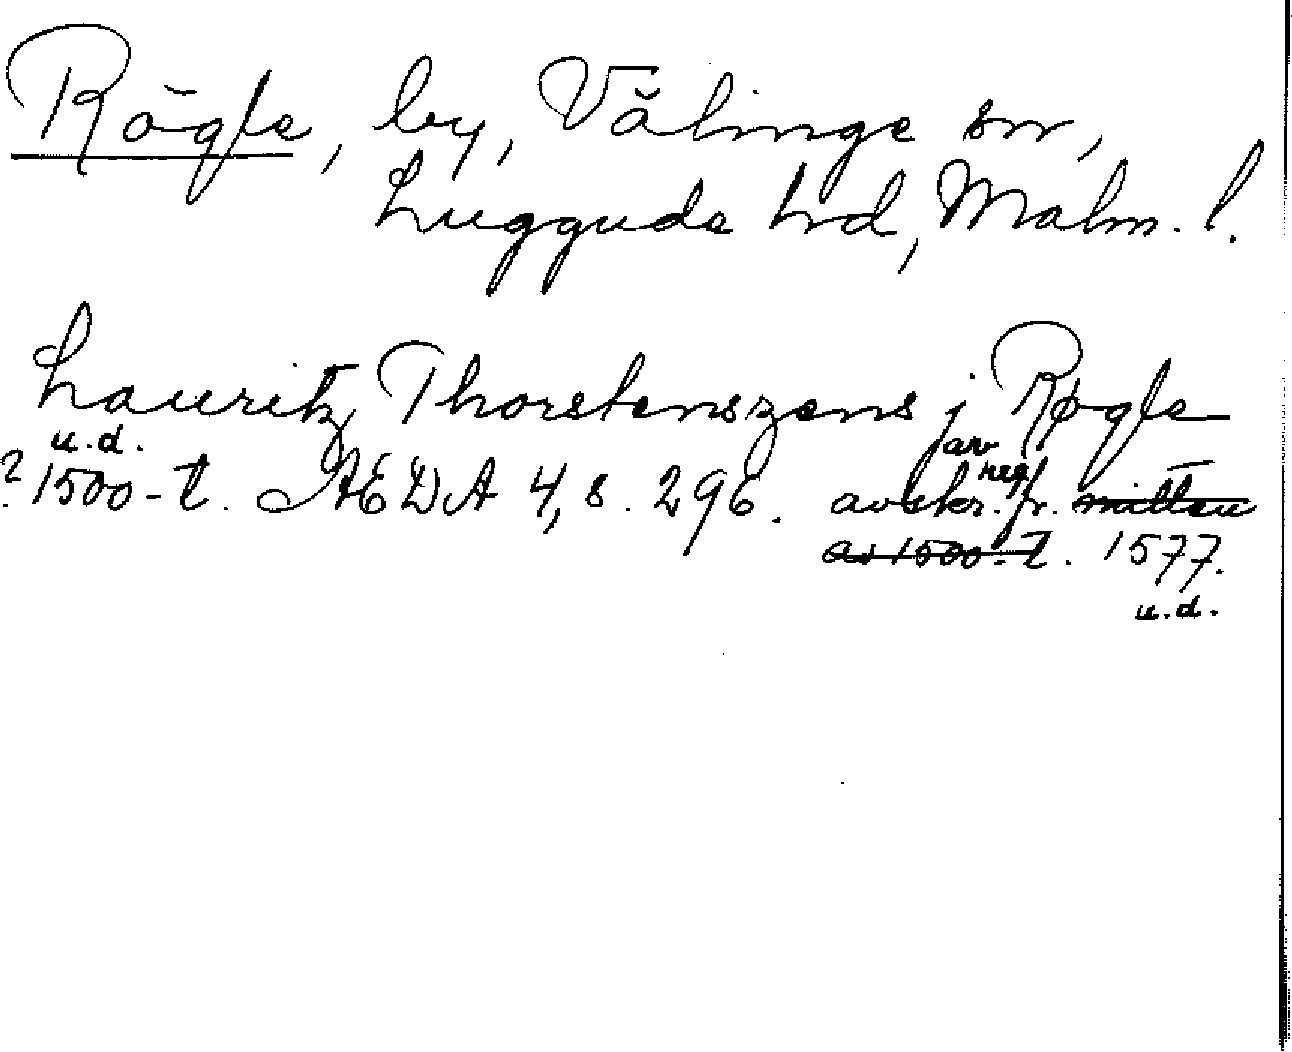 Rögle, by, Välinge sn,
Luggude hrd, Malm. l.
Lauritz Thorstenszens j Røgle
u.d.
? 1500-t. ÆDA 4, s. 296. avskr. fr. mitten
av reg.
av 1500-t. 1577.
u.d.